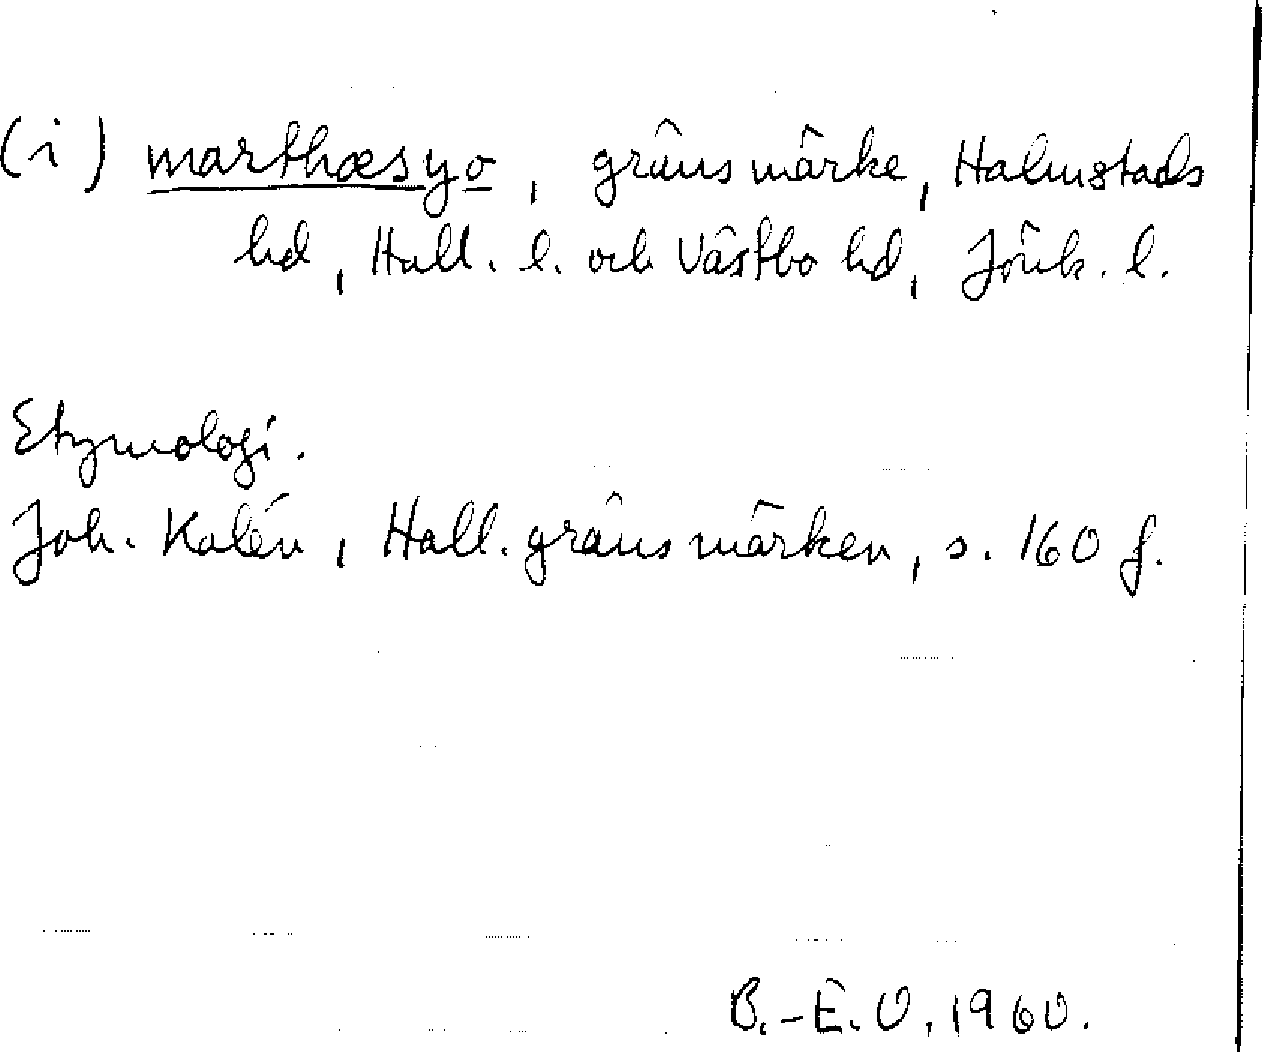 (i) marthæsyo, gränsmärke, Halmstads
hd, Hall. l. och Västbo hd, Jönk. l.
Etymologi.
Joh. Kalén, Hall. gränsmärken, s. 160 f.
B.-E. O. 1960.